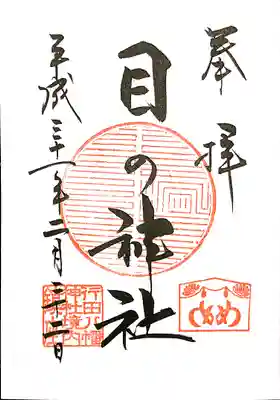 奉拝
目の神社
平成三十一年二月二十二日
行田八幡神社境内
めめ